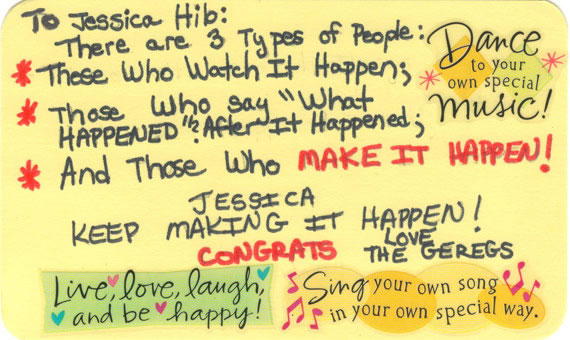 To Jessica Hib:
There are 3 Types of People:
* Those Who Watch It Happen;
* Those Who say "What
HAPPENED"? After It Happened;
* And Those Who MAKE IT HAPPEN!
JESSICA
KEEP MAKING IT HAPPEN!
CONGRATS LOVE
THE GEREGS
Dance
to your
own special
music!
Live, love, laugh,
and be happy!
Sing your own song
in your own special way.